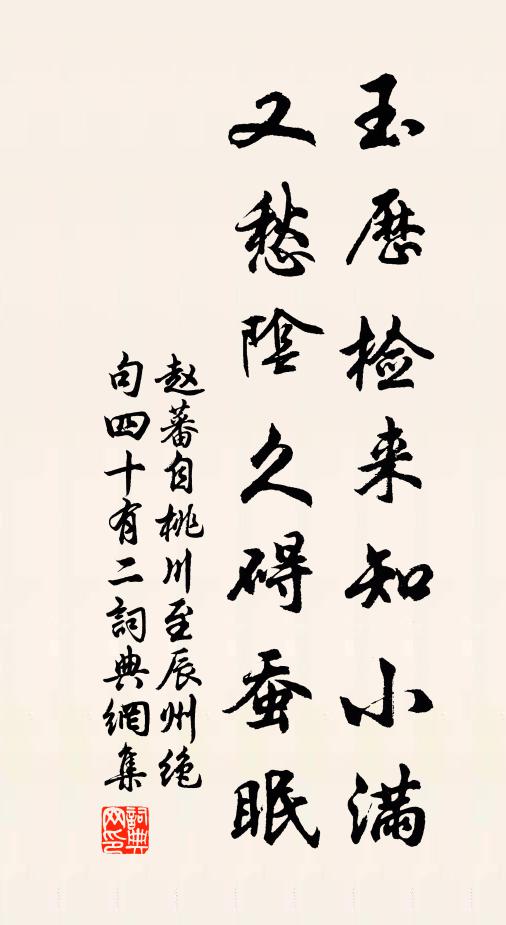 玉历检来知小满
又愁阴久碍蚕眠
赵蕃自桃川至辰州绝
句四十有二詞典網集
詞典
网印